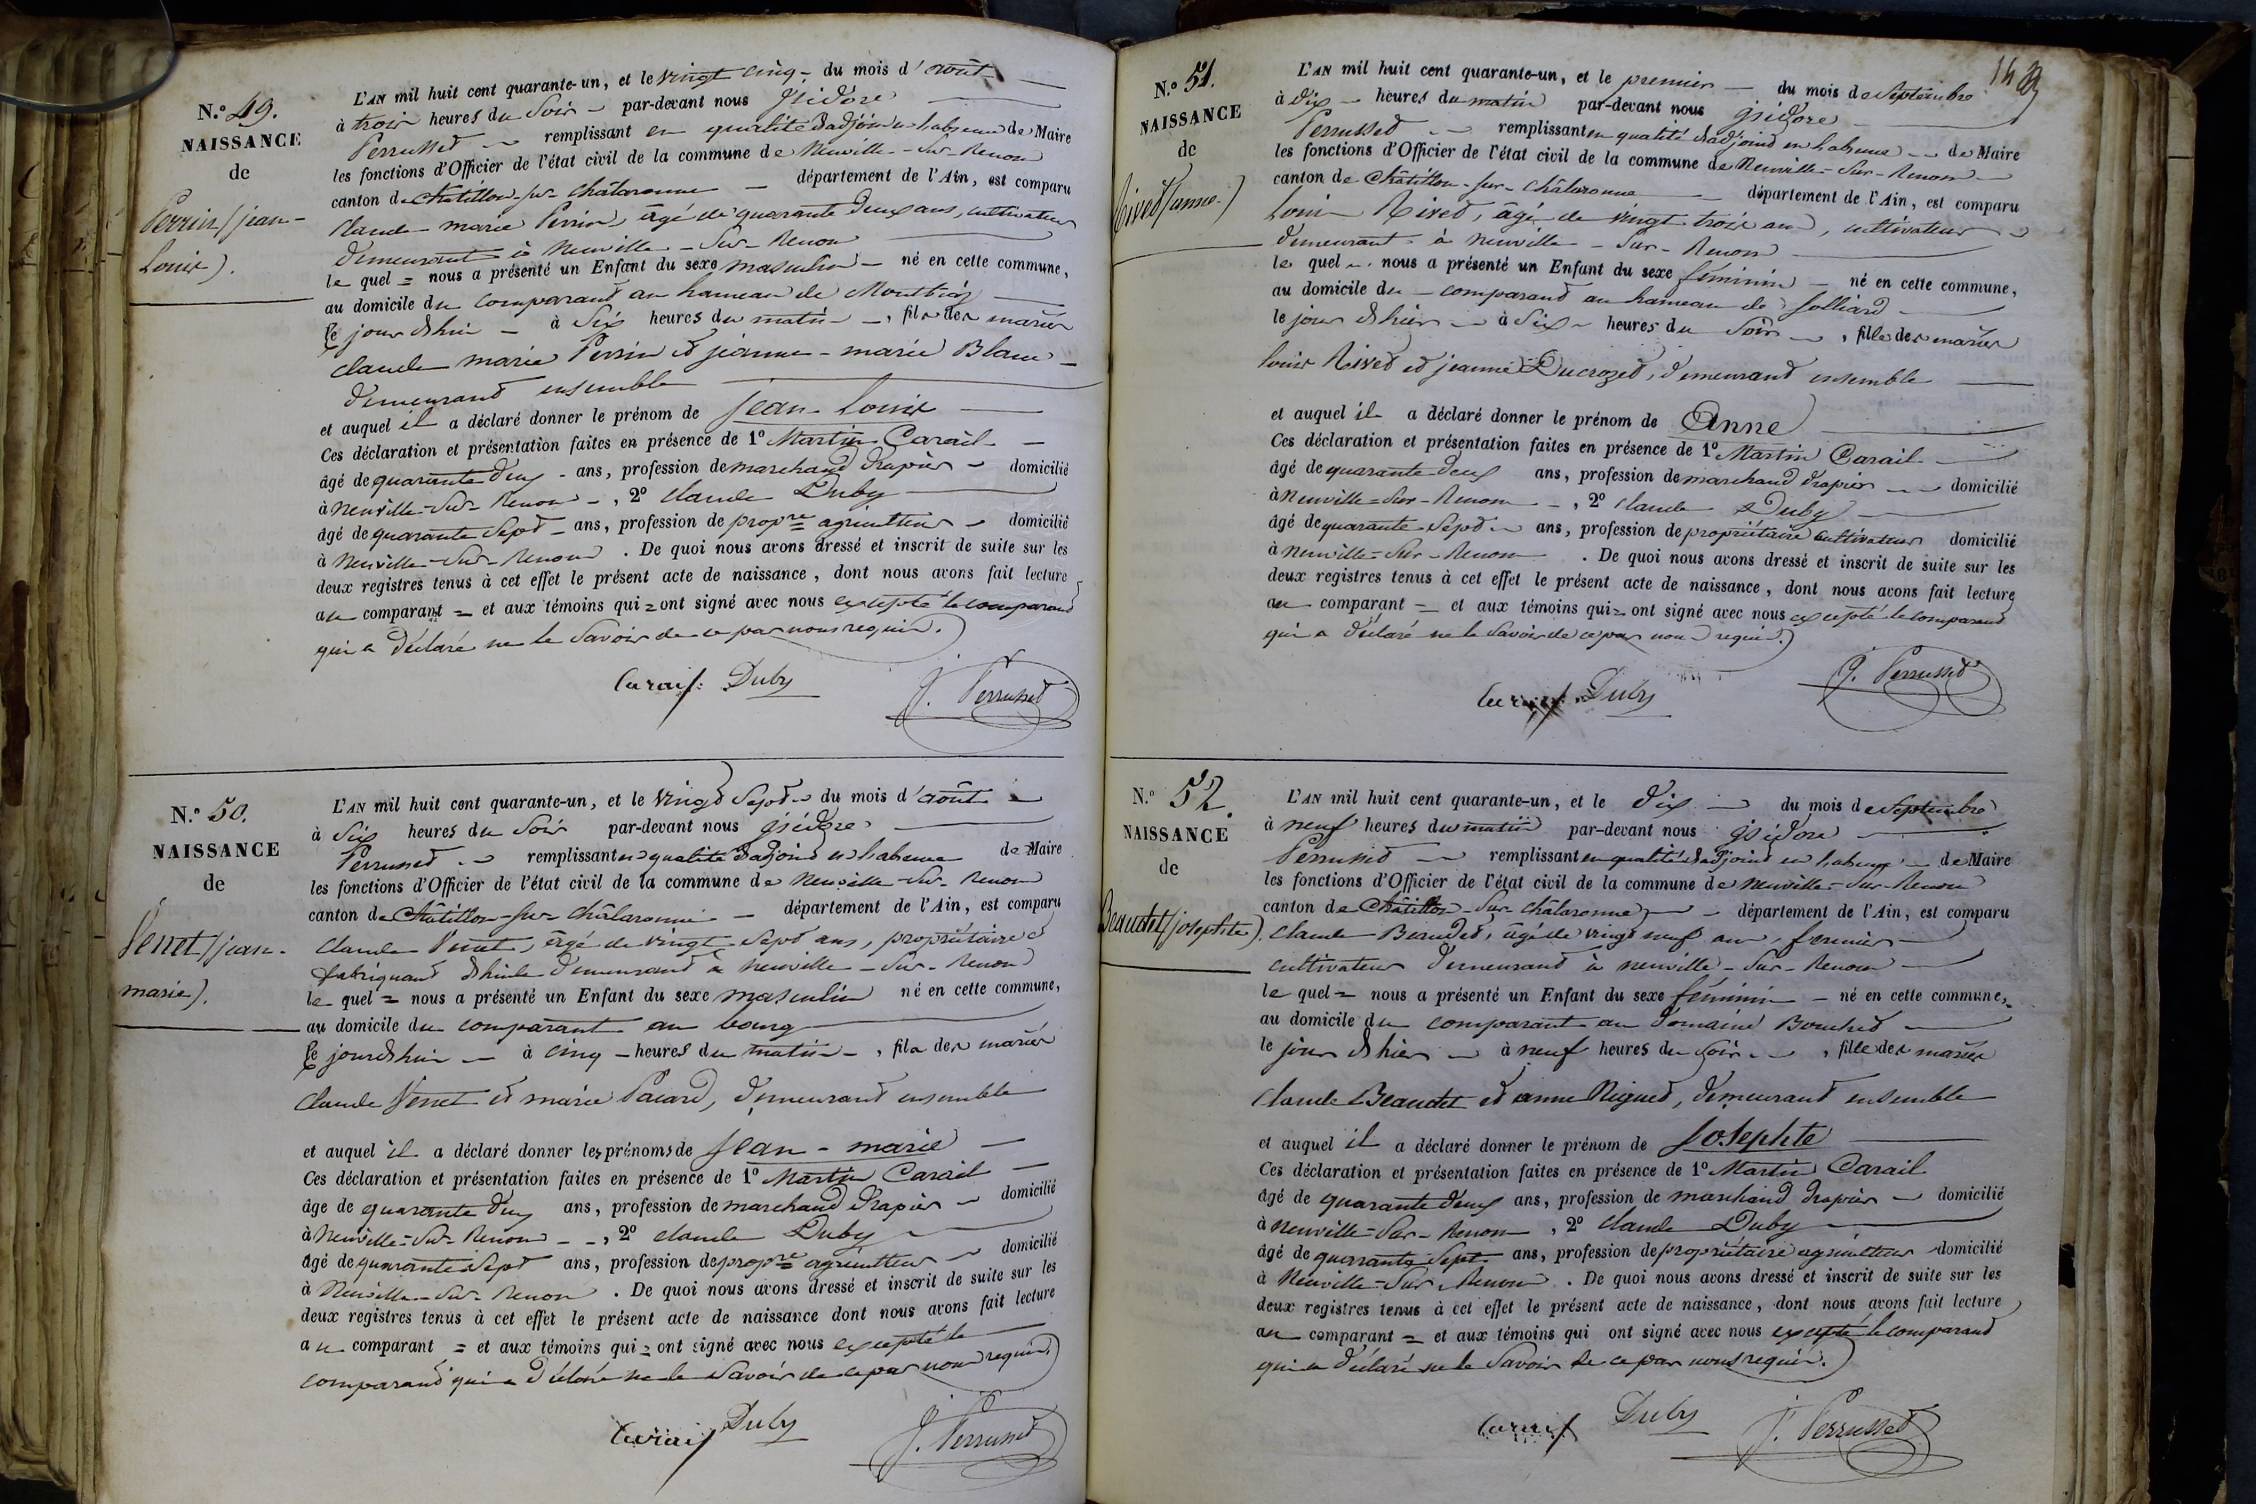 N.º 49.
NAISSANCE
de
Perrin (jean-
Louis).
L'AN mil huit cent quarante-un, et le vingt cinq - du mois d'août
à trois heures du Soir - par-devant nous jsidore
Perrusset - remplissant en qualité d'adjoint en l'absence de Maire
les fonctions d'Officier de l'état civil de la commune de Neuville-Sur-Renom
canton de Châtillon-sur-Châlaronne - département de l'Ain, est comparu
Claude marie Perrin, âgé de quarante deux ans, cultivateur
demeurant à Neuville-Sur-Renom
le quel = nous a présenté un Enfant du sexe masculin - né en cette commune,
au domicile du comparand au hameau de
Ce jourd'hui - à Six heures du matin -, fils des mariés
Claude marie Perrin et jeanne-marie Blanc -
demeurand ensemble
et auquel il a déclaré donner le prénom de jean-Louis
Ces déclaration et présentation faites en présence de 1º Martin Carail -
âgé de quarante deux - ans, profession de marchand drapier - domicilié
à Neuville-Sur-Renom -, 2º claude Duby
âgé de quarante Sept - ans, profession de propre agriculteur - domicilié
à Neuville-Sur-Renom . De quoi nous avons dressé et inscrit de suite sur les
deux registres tenus à cet effet le présent acte de naissance, dont nous avons fait lecture
au comparant = et aux témoins qui = ont signé avec nous excepté le comparand
qui a déclaré ne le Savoir de ce par nous requis.
Carail Duby J. Perrusset
N.º 50.
NAISSANCE
de
Venet (jean-
marie).
L'AN mil huit cent quarante-un, et le vingt Sept - du mois d'août -
à Six heures du Soir par-devant nous jsidore
Perrusset - remplissant en qualité d'adjoint en l'absence de Maire
les fonctions d'Officier de l'état civil de la commune de Neuville-Sur-Renom
canton de Châtillon-sur-Châlaronne - département de l'Ain, est comparu
Claude Venet, âgé de vingt Sept ans, propriétaire et
fabriquand d'huile demeurand à neuville-Sur-Renom
le quel = nous a présenté un Enfant du sexe masculin né en cette commune,
au domicile du comparant au bourg
Ce jourd'hui - à cinq - heures du matin -, fils des mariés
Claude Venet et marie Pacard, demeurand ensemble
et auquel il a déclaré donner les prénoms de jean-marie -
Ces déclaration et présentation faites en présence de 1º Martin Carail -
âge de quarante deux ans, profession de marchand drapier - domicilié
à Neuville-Sur-Renom - -, 2º claude Duby
âgé de quarante Sept ans, profession de propre agriculteur - domicilié
à Neuville-Sur-Renom . De quoi nous avons dressé et inscrit de suite sur les
deux registres tenus à cet effet le présent acte de naissance dont nous avons fait lecture
au comparant = et aux témoins qui = ont signé avec nous excepté le
comparand qui a déclaré ne le Savoir de ce par nous requis.
Carail Duby J. Perrusset
N.º 51.
NAISSANCE
de
Rivet (anne.)
L'AN mil huit cent quarante-un, et le premier - du mois de Septembre
à dix - heures du matin par-devant nous jsidore
Perrusset - remplissant en qualité d'adjoint en l'absence - de Maire
les fonctions d'Officier de l'état civil de la commune de Neuville-Sur-Renom
canton de Châtillon-sur-Châlaronne - département de l'Ain, est comparu
Louis Rivet, âgé de vingt trois ans, cultivateur
demeurant à neuville-Sur-Renom
le quel - nous a présenté un Enfant du sexe féminin - né en cette commune,
au domicile du - comparand au hameau de
le jour d'hier - à Six - heures du Soir -, fille des mariés
Louis Rivet et jeanne Ducrozet, demeurand ensemble
et auquel il a déclaré donner le prénom de Anne
Ces déclaration et présentation faites en présence de 1º Martin Carail -
âgé de quarante deux ans, profession de marchand drapier - domicilié
à neuville-Sur-Renom -, 2º claude Duby
âgé de quarante-Sept - ans, profession de propriétaire cultivateur domicilié
à neuville-Sur-Renom . De quoi nous avons dressé et inscrit de suite sur les
deux registres tenus à cet effet le présent acte de naissance, dont nous avons fait lecture
au comparant = et aux témoins qui = ont signé avec nous excepté le comparand
qui a déclaré ne le Savoir de ce par nous requis.
Carail Duby J. Perrusset
N.º 52.
NAISSANCE
de
Beaudet (josephte).
L'AN mil huit cent quarante-un, et le dix - du mois de Septembre
à neuf heures du matin par-devant nous jsidore
Perrusset - remplissant en qualité d'adjoint en l'absence - de Maire
les fonctions d'Officier de l'état civil de la commune de Neuville-Sur-Renom
canton de Châtillon-Sur-Châlaronne - département de l'Ain, est comparu
Claude Beaudet, âgé de vingt neuf ans, fermier
cultivateur demeurand à neuville-Sur-Renom
le quel = nous a présenté un Enfant du sexe féminin - né en cette commune,
au domicile du comparant au domaine Bouchet
le jour d'hier - à neuf heures du Soir -, fille des mariés
Claude Beaudet et anne Niguet, demeurand ensemble
et auquel il a déclaré donner le prénom de Josephte
Ces déclaration et présentation faites en présence de 1º Martin Carail
âgé de quarante deux ans, profession de marchand drapier - domicilié
à neuville-Sur-Renom, 2º claude Duby
âgé de quarante Sept ans, profession de propriétaire agriculteur domicilié
à Neuville-Sur-Renom . De quoi nous avons dressé et inscrit de suite sur les
deux registres tenus à cet effet le présent acte de naissance, dont nous avons fait lecture
au comparant = et aux témoins qui ont signé avec nous excepté le comparand
qui a déclaré ne le Savoir de ce par nous requis.
Carail Duby J. Perrusset